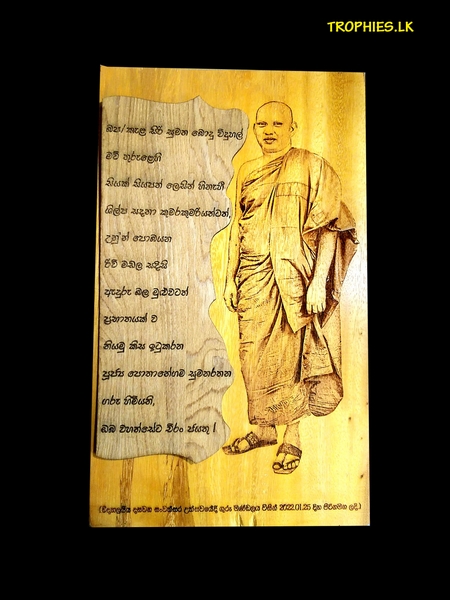 TROPHIES.LK
බප/කැළ සිරි සුමන බොදු විදුහල්
මව් තුරුළෙහි
සියක් සියපත් ලෙසින් හිනැහී
ශිල්ප සදනා කුමරකුමරියන්ටත්,
උන්ගෙන් පොබයන
රිවි මඩල සදිසි
ඇදුරු බල මුළුවටත්
ප්‍රභානයක් ව
නියමු කිස ඉටුකරන
පූජ්‍ය පොතානේගම සුමනරතන
ගරු හිමියනි,
ඔබ වහන්සේට චිරං ජයතු !
(විද්‍යාලයීය දසවන සංවත්සර උත්සවයේදී ගුරු මණ්ඩලය විසින් 2022.01.25 දින පිරිනමන ලදි.)